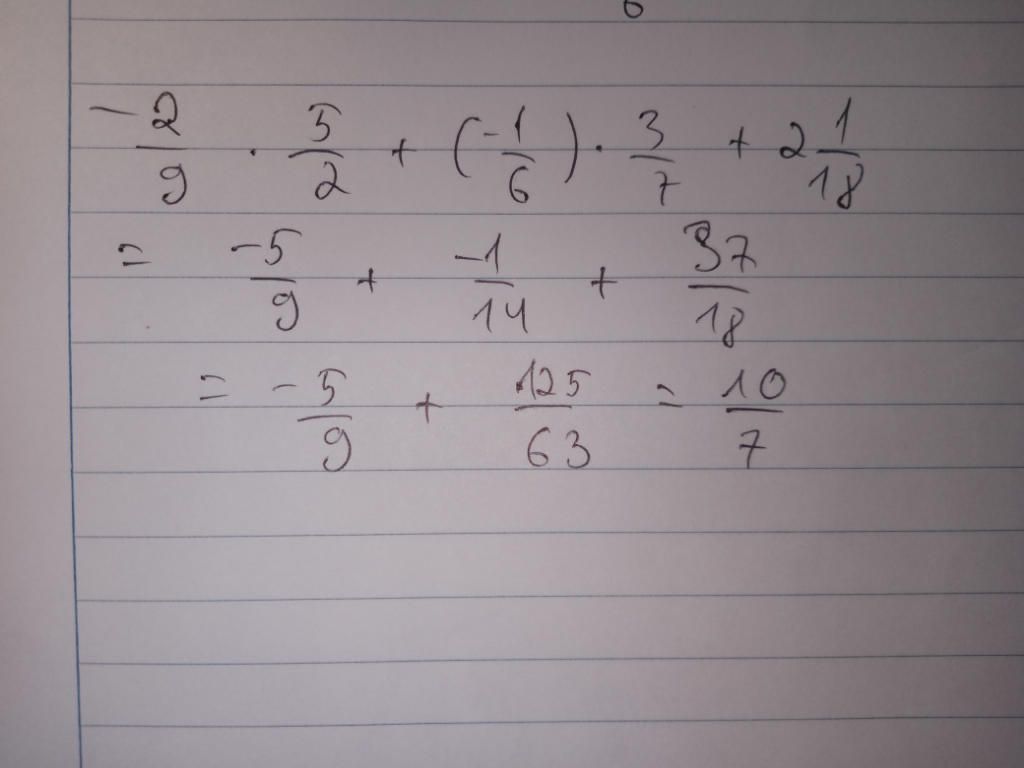 6
-2/9 · 5/2 + (-1/6) · 3/7 + 2 1/18
= -5/9 + -1/14 + 37/18
= -5/9 + 125/63 = 10/7